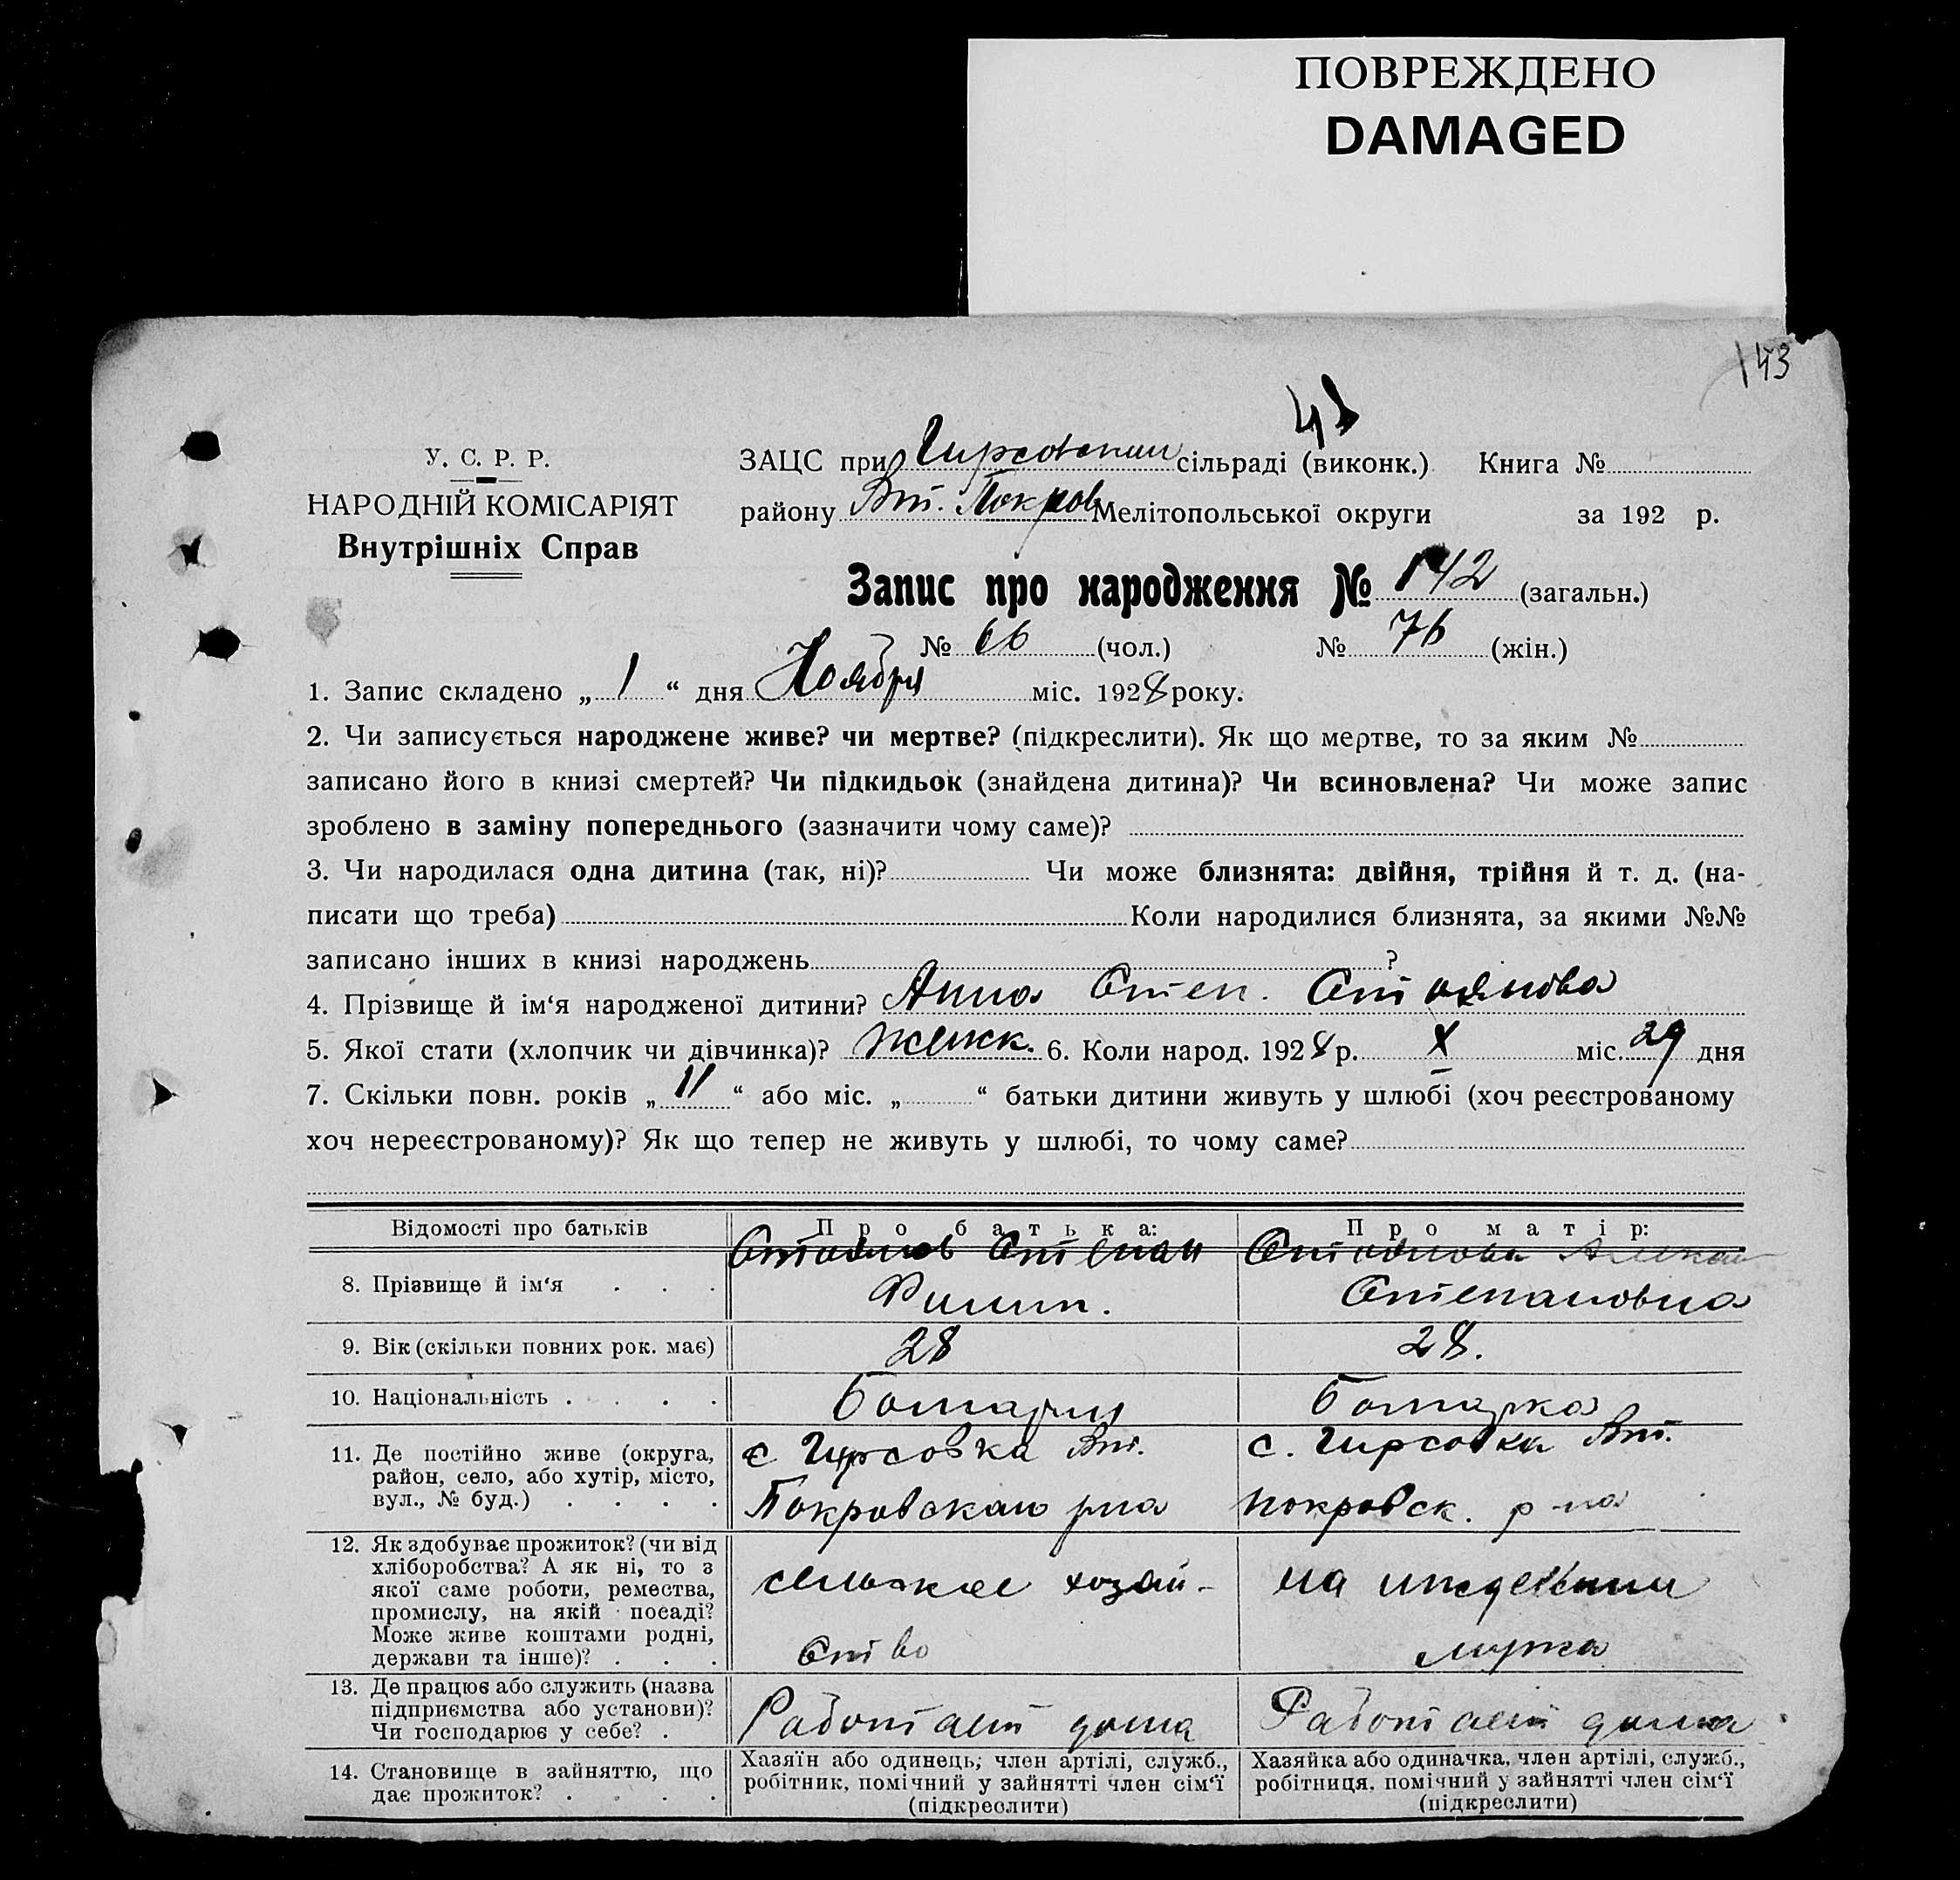 ПОВРЕЖДЕНО
DAMAGED
143
У. С. Р. Р.
НАРОДНІЙ КОМІСАРІЯТ
Внутрішніх Справ
ЗАЦС при Гирсовским сільраді (виконк.) Книга №
району Вт. Покров Мелітопольської округи за 192 р.
Запис про народження № 142 (загальн.)
№ 66 (чол.) № 76 (жін.)
1. Запис складено „ 1 “ дня Ноября міс. 1928 року.
2. Чи записується народжене живе? чи мертве? (підкреслити). Як що мертве, то за яким №
записано його в книзі смертей? Чи підкидьок (знайдена дитина)? Чи всиновлена? Чи може запис
зроблено в заміну попереднього (зазначити чому саме)?
3. Чи народилася одна дитина (так, ні)? Чи може близнята: двійня, трійня й т. д. (на-
писати що треба) Коли народилися близнята, за якими №№
записано інших в книзі народжень ?
4. Прізвище й ім‘я народженої дитини? Анна Степ. Стоянова
5. Якої стати (хлопчик чи дівчинка)? женск. 6. Коли народ. 1928 р. X міс. 29 дня
7. Скільки повн. років „ 11 “ або міс. „ “ батьки дитини живуть у шлюбі (хоч реєстрованому
хоч нереєстрованому)? Як що тепер не живуть у шлюбі, то чому саме?
Відомості про батьків
Про батька:
Про матір:
8. Прізвище й ім‘я . . .
Стоянов Степан
Филип.
Стоянова
Степановна
9. Вік (скільки повних рок. має)
28
28.
10. Національність . . . .
Болгарин
Болгарка
11. Де постійно живе (округа,
район, село, або хутір, місто,
вул., № буд.) . . . .
с Гирсовка Вт.
Покровскаго рна
с. Гирсовка Вт.
Покровск. р-на
12. Як здобуває прожиток? (чи від
хліборобства? А як ні, то з
якої саме роботи, ремества,
промислу, на якій посаді?
Може живе коштами родні,
держави та інше)? . . .
сельское хозяй-
ство
на иждевении
мужа
13. Де працює або служить (назва
підприємства або установи)?
Чи господарює у себе? .
Работает дома
Работает дома
14. Становище в зайняттю, що
дає прожиток? . . . .
Хазяїн або одинець; член артілі, служб.,
робітник, помічний у зайнятті член сім‘ї
(підкреслити)
Хазяйка або одиначка, член артілі, служб.,
робітниця, помічний у зайнятті член сім‘ї
(підкреслити)